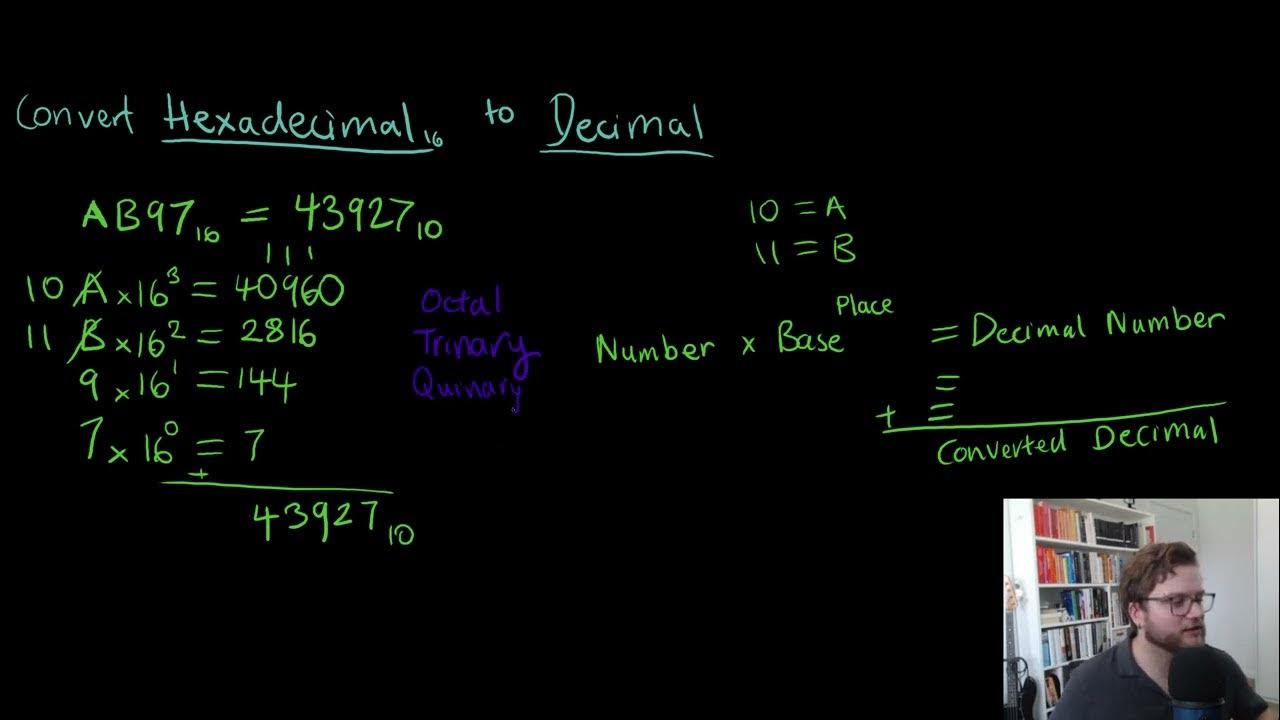 Convert Hexadecimal₁₆ to Decimal
AB97₁₆ = 43927₁₀
10 = A
11 = B
1 1 1
10 A × 16³ = 40960
11 B × 16² = 2816
9 × 16¹ = 144
7 × 16⁰ = 7
+
43927₁₀
Octal
Trinary
Quinary
Place
Number × Base = Decimal Number
=
+ =
Converted Decimal